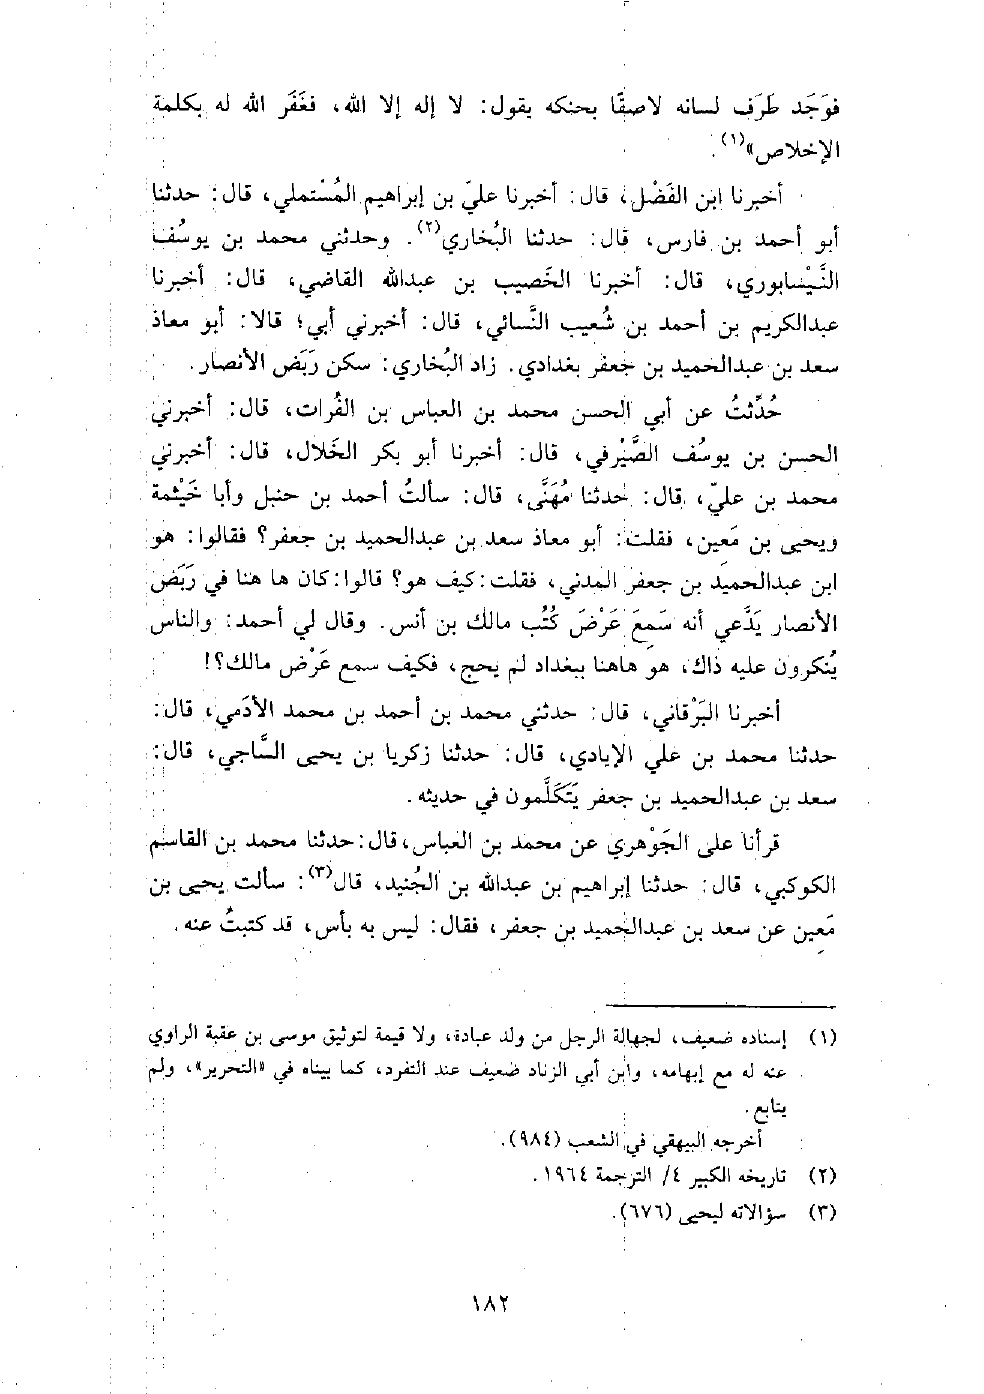 فوَجَد طَرَف لسانه لاصقًا بحنكه يقول: لا إله إلا الله، فغَفَر الله له بكلمة
الإخلاص»(١).
أخبرنا ابن الفَضْل، قال: أخبرنا عليّ بن إبراهيم المُسْتملي، قال: حدثنا
أبو أحمد بن فارس، قال: حدثنا البُخاري(٢). وحدثني محمد بن يوسُف
النَّيْسابوري، قال: أخبرنا الخَصيب بن عبدالله القاضي، قال: أخبرنا
عبدالكريم بن أحمد بن شُعيب النَّسائي، قال: أخبرني أبي؛ قالا: أبو معاذ
سعد بن عبدالحميد بن جعفر بغدادي. زاد البُخاري: سكن رَبَض الأنصار.
حُدِّثتُ عن أبي الحسن محمد بن العباس بن الفُرات، قال: أخبرني
الحسن بن يوسُف الصَّيْرفي، قال: أخبرنا أبو بكر الخَلال، قال: أخبرني
محمد بن عليّ، قال: حدثنا مُهَنَّى، قال: سألتُ أحمد بن حنبل وأبا خَيْثمة
ويحيى بن مَعين، فقلت: أبو معاذ سعد بن عبدالحميد بن جعفر؟ فقالوا: هو
ابن عبدالحميد بن جعفر المدني، فقلت: كيف هو؟ قالوا: كان ها هنا في رَبَض
الأنصار يَدَّعي أنه سَمِعَ عَرْضَ كُتُب مالك بن أنس. وقال لي أحمد: والناس
يُنكرون عليه ذاك، هو هاهنا ببغداد لم يحج، فكيف سمع عَرْض مالك؟!
أخبرنا البَرْقاني، قال: حدثني محمد بن أحمد بن محمد الأدَمي، قال:
حدثنا محمد بن علي الإيادي، قال: حدثنا زكريا بن يحيى السَّاجي، قال:
سعد بن عبدالحميد بن جعفر يَتَكَلَّمون في حديثه.
قرأنا على الجَوْهري عن محمد بن العباس، قال: حدثنا محمد بن القاسم
الكوكبي، قال: حدثنا إبراهيم بن عبدالله بن الجُنيد، قال(٣): سألت يحيى بن
مَعِين عن سعد بن عبدالحميد بن جعفر، فقال: ليس به بأس، قد كتبتُ عنه.
(١) إسناده ضعيف، لجهالة الرجل من ولد عبادة، ولا قيمة لتوثيق موسى بن عقبة الراوي
عنه له مع إبهامه، وابن أبي الزناد ضعيف عند التفرد، كما بيناه في «التحرير»، ولم
يتابع.
أخرجه البيهقي في الشعب (٩٨٤).
(٢) تاريخه الكبير ٤/ الترجمة ١٩٦٤.
(٣) سؤالاته ليحيى (٦٧٦).
١٨٢